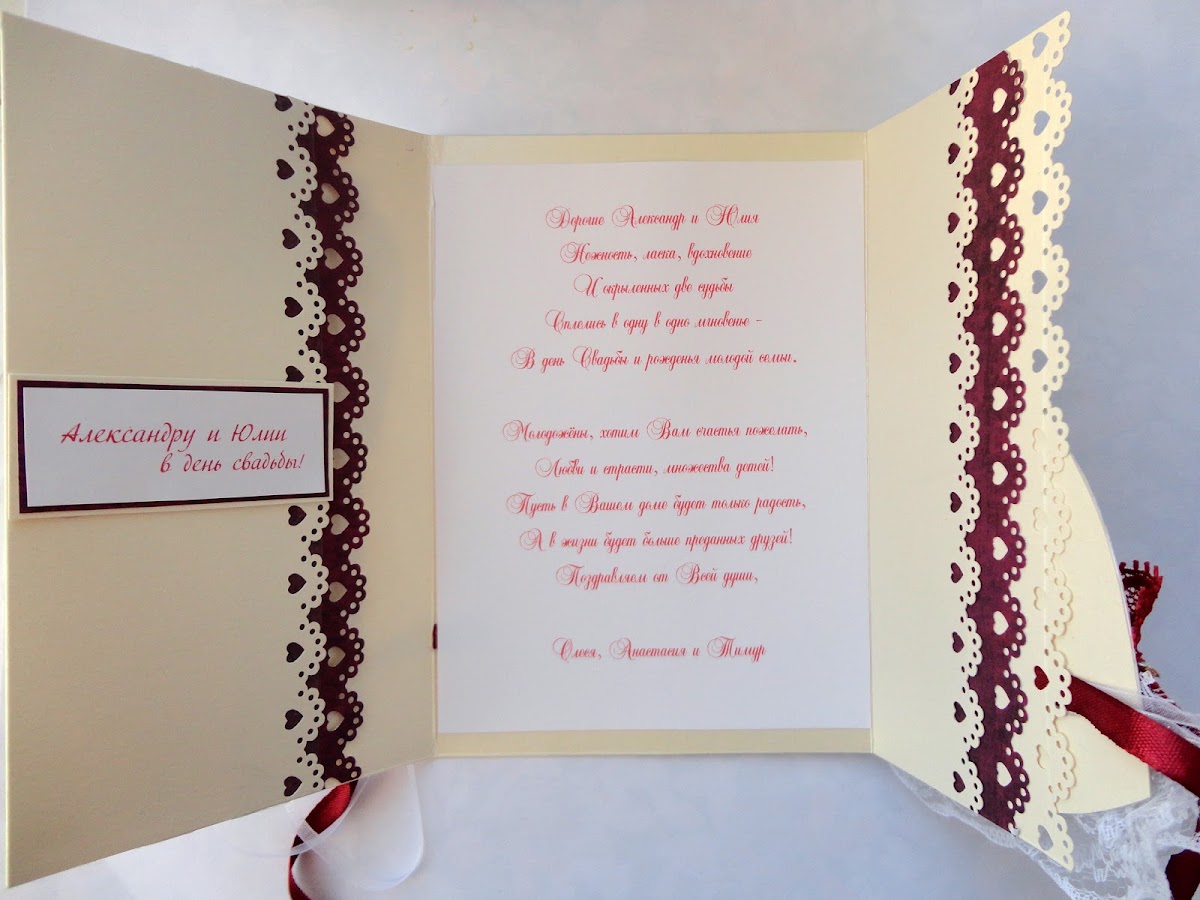 Александру и Юлии
в день свадьбы!
Дорогие Александр и Юлия
Нежность, ласка, вдохновение
И окрыленных две судьбы
Сплелись в одну в одно мгновенье -
В день Свадьбы и рожденья молодой семьи.
Молодожёны, хотим Вам счастья пожелать,
Любви и страсти, множества детей!
Пусть в Вашем доме будет только радость,
А в жизни будет больше преданных друзей!
Поздравляем от Всей души,
Олеся, Анастасия и Тимур